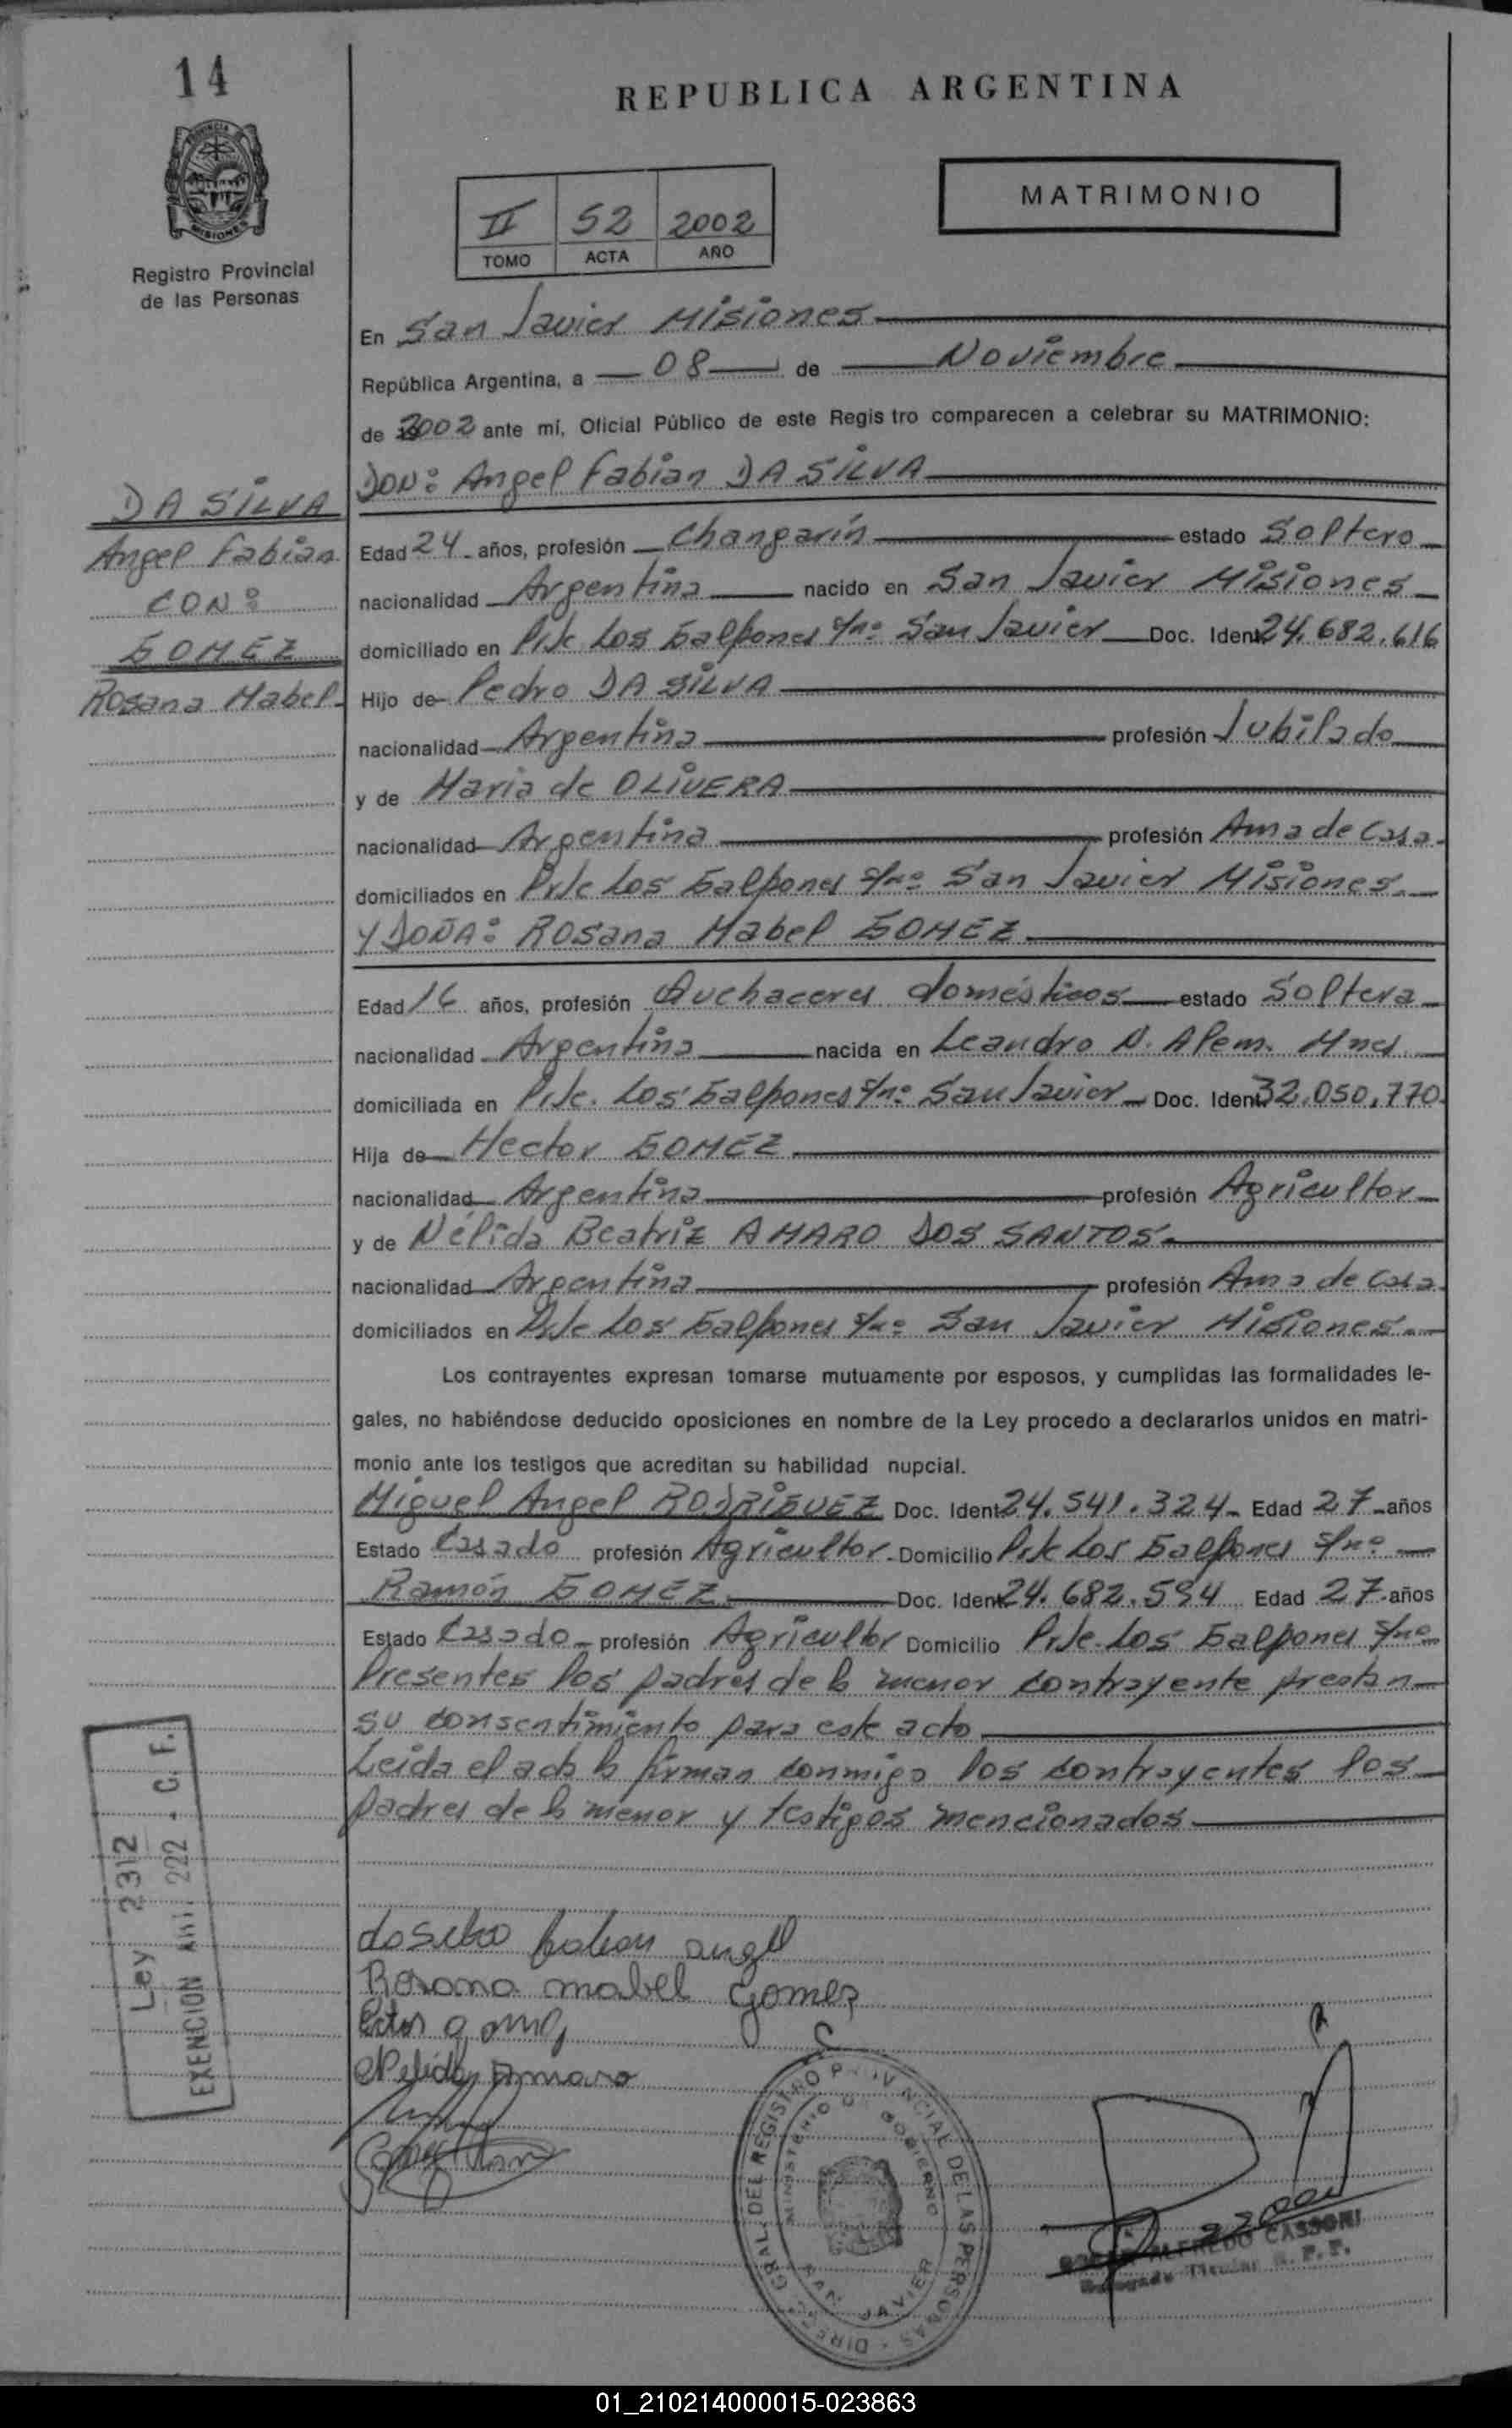 14
REPUBLICA ARGENTINA
MATRIMONIO
II 52 2002
TOMO ACTA AÑO
PROVINCIA DE
MISIONES
Registro Provincial
de las Personas
En San Javier Misiones
República Argentina, a 08 de Noviembre
de 2002 ante mí, Oficial Público de este Regis tro comparecen a celebrar su MATRIMONIO:
DON: Angel Fabian DA SILVA
DA SILVA
Angel Fabian
CON:
GOMEZ
Rosana Mabel
Edad 24 años, profesión Changarín estado Soltero
nacionalidad Argentina nacido en San Javier Misiones
domiciliado en Pje Los Galpones s/nº San Javier Doc. Ident 24.682.616
Hijo de Pedro DA SILVA
nacionalidad Argentina profesión Jubilado
y de Maria de OLIVERA
nacionalidad Argentina profesión Ama de Casa
domiciliados en Pje Los Galpones s/nº San Javier Misiones
Y DOÑA: Rosana Mabel GOMEZ
Edad 16 años, profesión Quehaceres domésticos estado Soltera
nacionalidad Argentina nacida en Leandro N. Alem. Mnes
domiciliada en Pje. Los Galpones s/nº San Javier Doc. Ident 32.050.770
Hija de Hector GOMEZ
nacionalidad Argentina profesión Agricultor
y de Nélida Beatriz AMARO DOS SANTOS
nacionalidad Argentina profesión Ama de Casa
domiciliados en Pje Los Galpones s/nº San Javier Misiones
Los contrayentes expresan tomarse mutuamente por esposos, y cumplidas las formalidades le-
gales, no habiéndose deducido oposiciones en nombre de la Ley procedo a declararlos unidos en matri-
monio ante los testigos que acreditan su habilidad nupcial.
Miguel Angel RODRIGUEZ Doc. Ident 24.541.324 Edad 27 años
Estado Casado profesión Agricultor Domicilio Pje Los Galpones s/nº
Ramón GOMEZ Doc. Ident 24.682.594 Edad 27 años
Estado Casado profesión Agricultor Domicilio Pje. Los Galpones s/nº
Presentes los padres de la menor contrayente prestan
su consentimiento para este acto
Leida el acta la firman conmigo los contrayentes los
padres de la menor y testigos mencionados
Ley 2312
EXENCION Art. 222 - C. F.
fabian angel
Rosana mabel Gomez
Nelida Amaro
DIREC. GRAL. DEL REGISTRO PROVINCIAL DE LAS PERSONAS
MINISTERIO DE GOBIERNO
SAN JAVIER
ALFREDO CASSONI
Delegado Titular R. P. P.
01_210214000015-023863